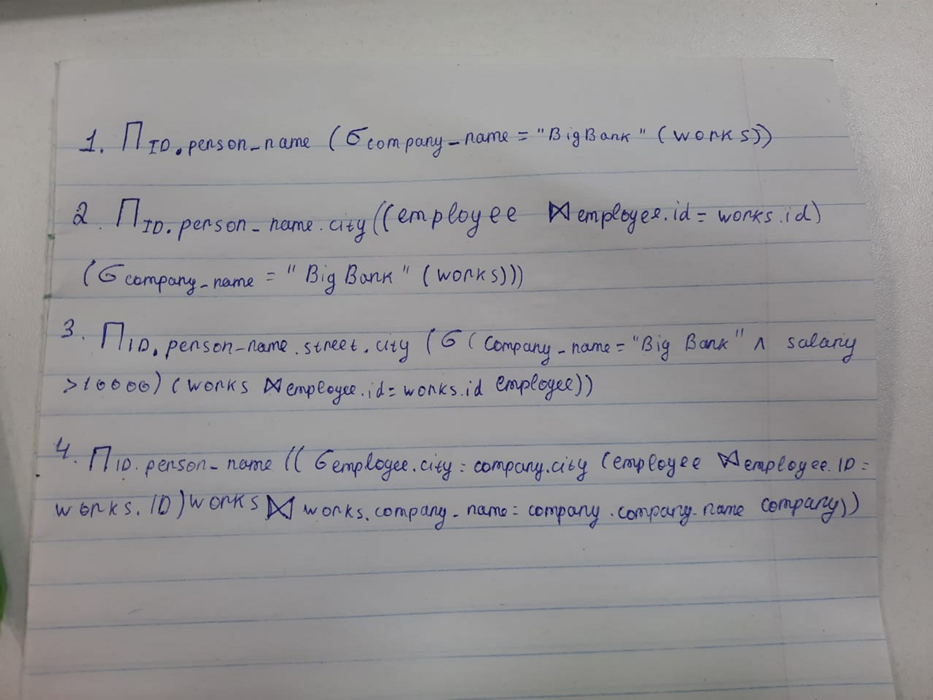 1. Π ID. person_name (σ company_name = "BigBank" (works))
2. Π ID. person_name. city ((employee ⋈ employee.id = works.id)
(σ company_name = "Big Bank" (works)))
3. Π ID. person_name. street. city (σ ( Company_name = "Big Bank" ∧ salary
>10000) (works ⋈ employee.id = works.id employee))
4. Π ID. person_name (( σ employee.city = company.city (employee ⋈ employee. ID =
works. ID) works ⋈ works. company_name = company. company_name company))